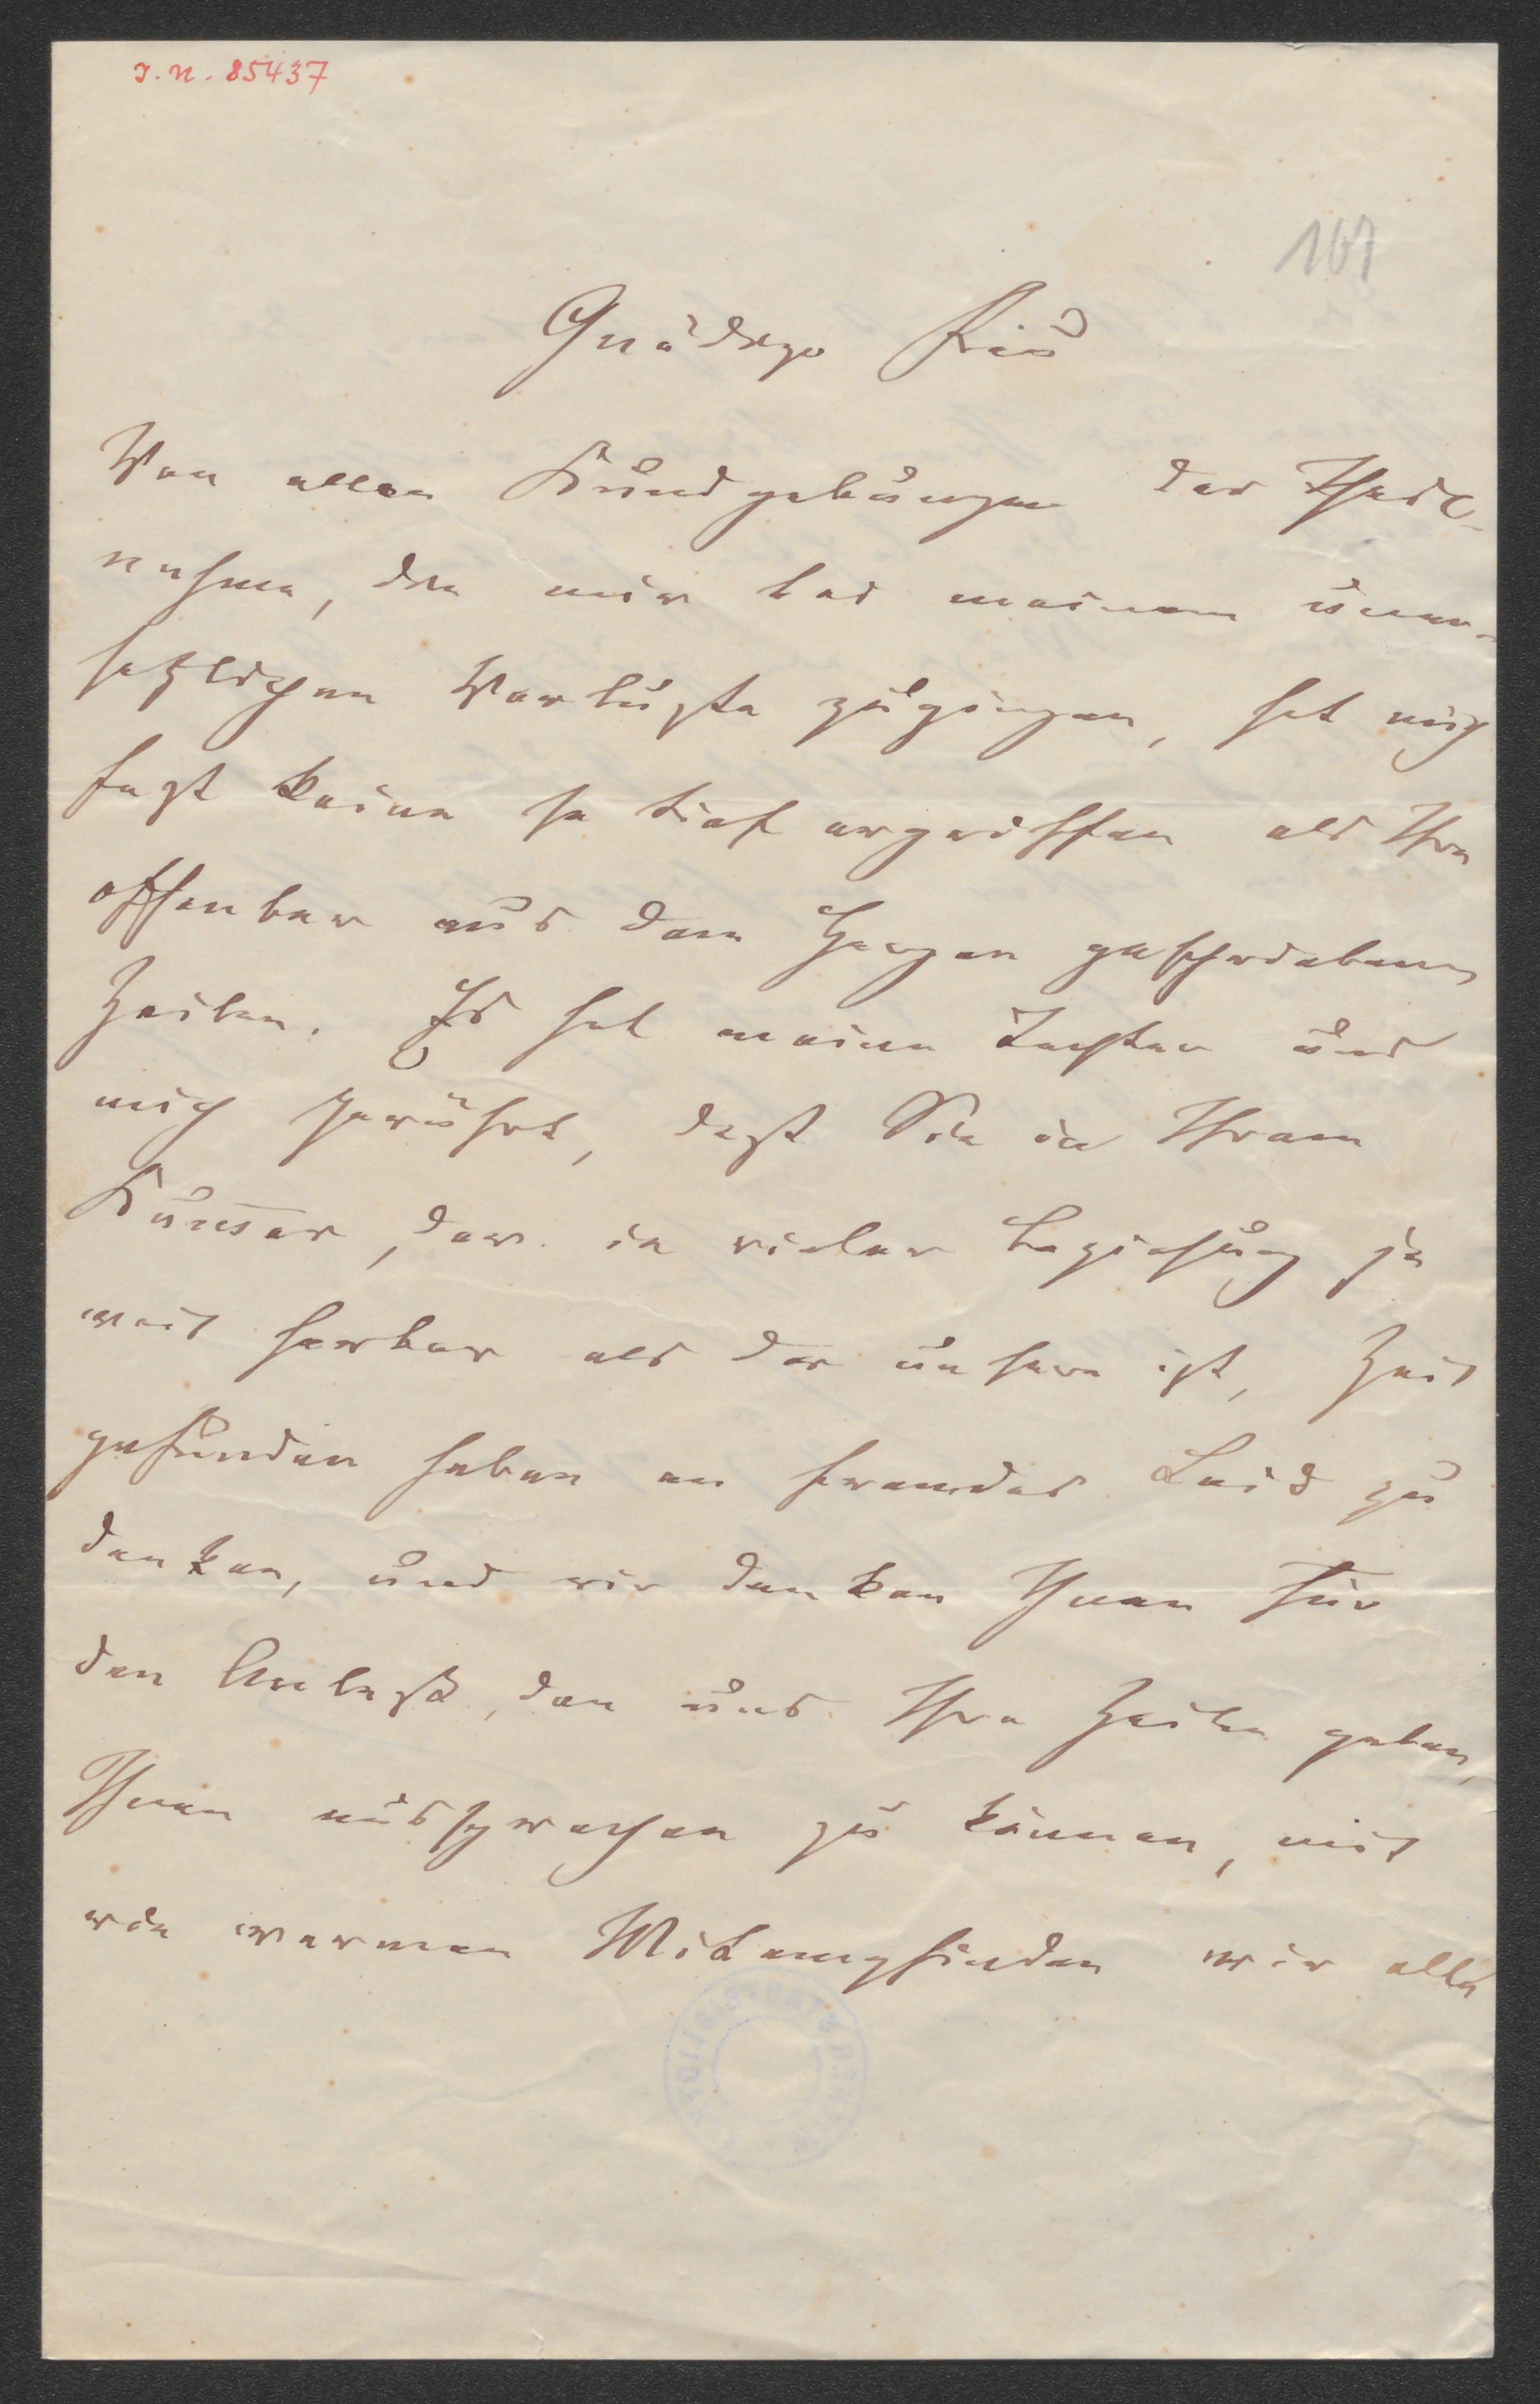 I. N. 85437
167
Gnädige Frau
Von allen Kundgebungen der Theil-
nahme, die mir bei meinem uner-
setzlichen Verluste zugingen, hat mich
fast keine so tief ergriffen als Ihre
offenbar aus dem Herzen geschriebenen
Zeilen. Es hat meine Tochter und
mich gerührt, daß Sie in Ihrem
Kum̅er, der in vieler Beziehung ja
weit herber als der unsere ist, Zeit
gefunden haben an fremdes Leid zu
denken, und wir danken Ihnen für
den Anlaß, den uns Ihre Zeilen geben,
Ihnen aussprechen zu können, mit
wie warmen Mitempfinden wir alle